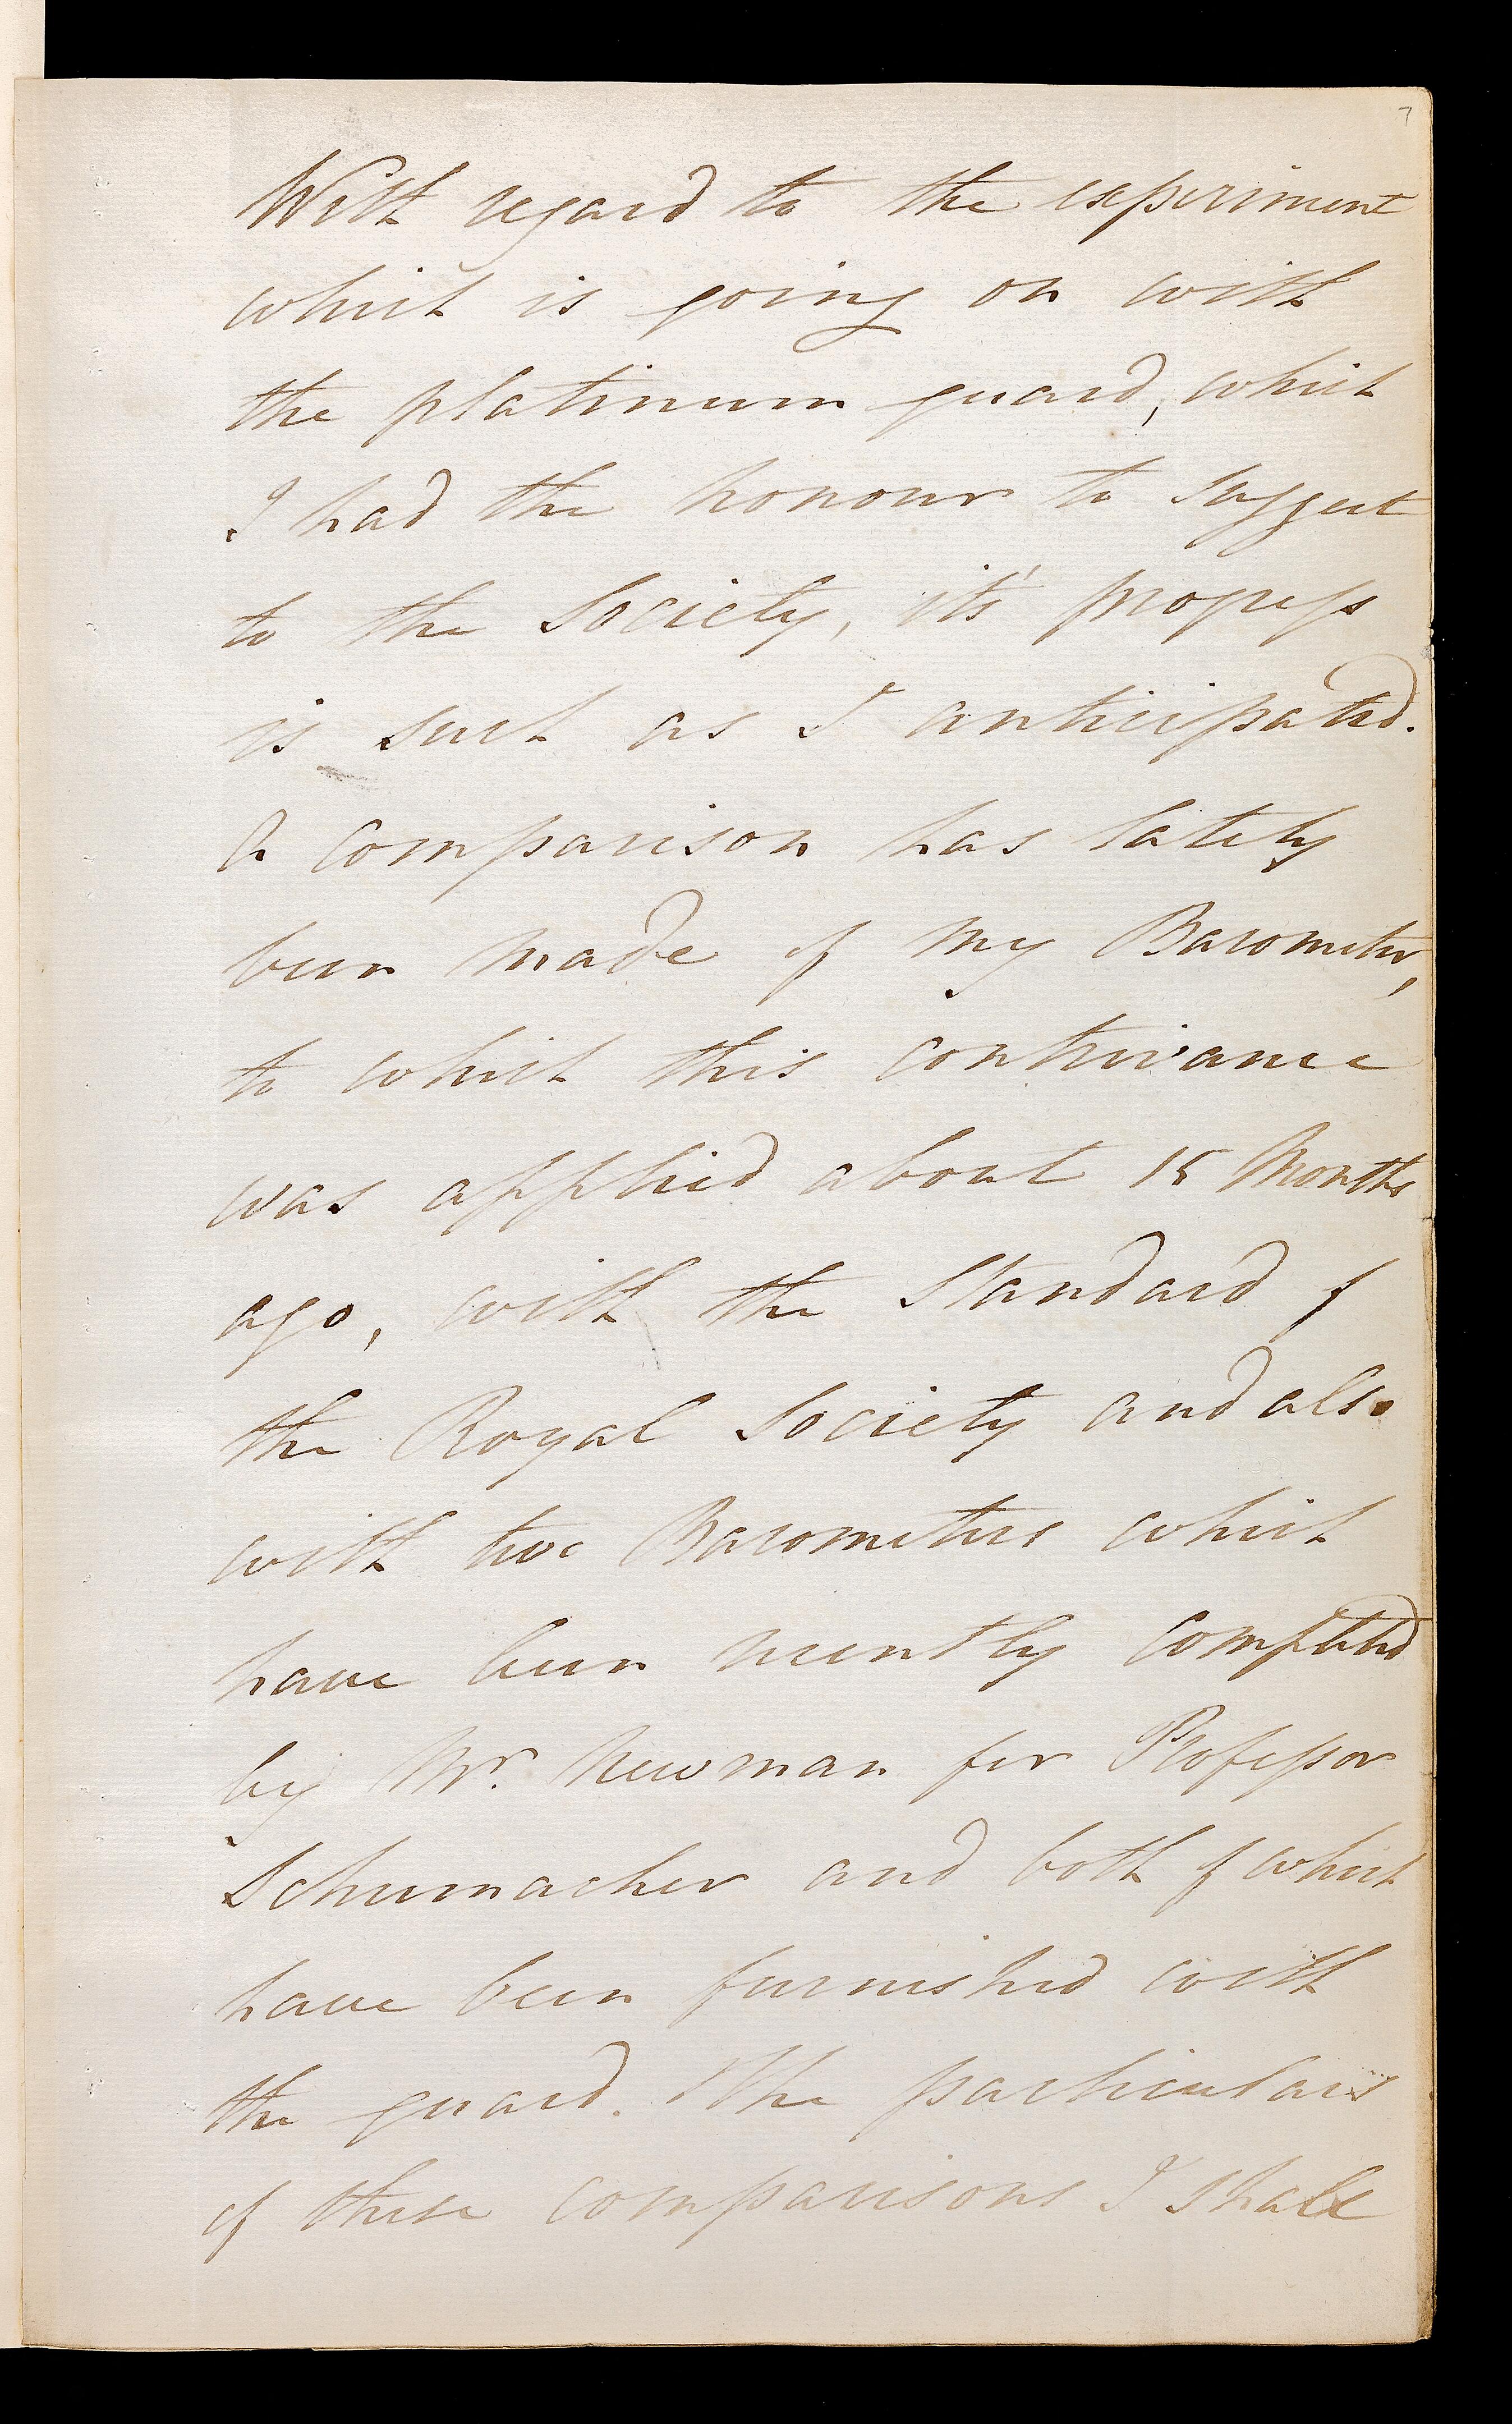 7
With regard to the experiment
which is going on with
the platinum guard, which
I had the honour to suggest
to the Society, it's progress
is such as I anticipated.
A comparison has lately
been made of my Barometer,
to which this contrivance
was applied about 15 Months
ago, with the Standard of
the Royal Society and also
with two Barometers which
have been recently completed
by Mr. Newman for Professor
Schumacher and both of which
have been furnished with
the guard. The particulars
of these comparisons I shall